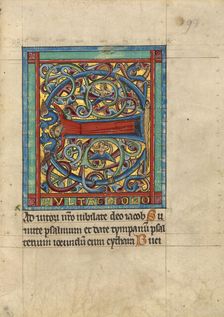 E
XULTATE DEO
Adiutori nr̄o iubilate deo iacob Su
mite psalmum et date tympanum psal
terium iocundum cum cythara Buci